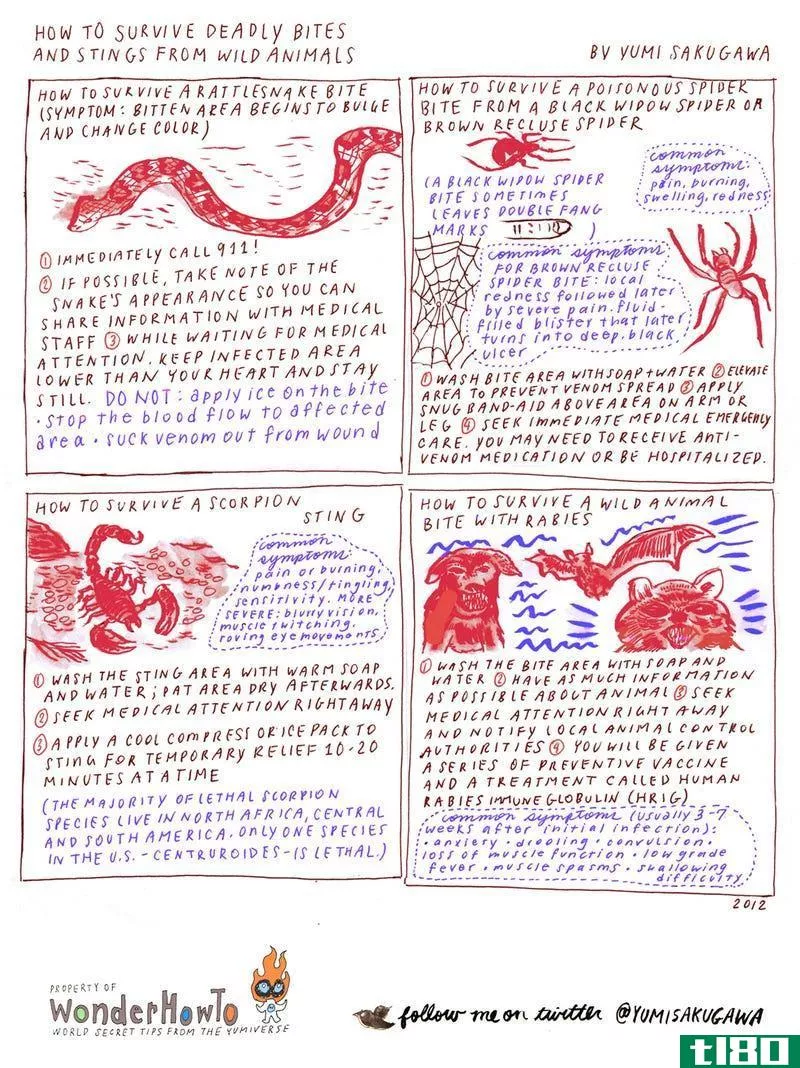 HOW TO SURVIVE DEADLY BITES
AND STINGS FROM WILD ANIMALS
BY YUMI SAKUGAWA
HOW TO SURVIVE A RATTLESNAKE BITE
(SYMPTOM: BITTEN AREA BEGINS TO BULGE
AND CHANGE COLOR)
① IMMEDIATELY CALL 911!
② IF POSSIBLE, TAKE NOTE OF THE
SNAKE'S APPEARANCE SO YOU CAN
SHARE INFORMATION WITH MEDICAL
STAFF ③ WHILE WAITING FOR MEDICAL
ATTENTION, KEEP INFECTED AREA
LOWER THAN YOUR HEART AND STAY
STILL. DO NOT: apply ice on the bite
· stop the blood flow to affected
area · suck venom out from wound
HOW TO SURVIVE A POISONOUS SPIDER
BITE FROM A BLACK WIDOW SPIDER OR
BROWN RECLUSE SPIDER
(A BLACK WIDOW SPIDER
BITE SOMETIMES
LEAVES DOUBLE FANG
MARKS )
common
symptoms:
pain, burning,
swelling, redness
common symptoms
FOR BROWN RECLUSE
SPIDER BITE: local
redness followed later
by severe pain. fluid-
filled blister that later
turns into deep, black
ulcer
① WASH BITE AREA WITH SOAP + WATER ② ELEVATE
AREA TO PREVENT VENOM SPREAD ③ APPLY
SNUG BAND-AID ABOVE AREA ON ARM OR
LEG ④ SEEK IMMEDIATE MEDICAL EMERGENCY
CARE. YOU MAY NEED TO RECEIVE ANTI-
VENOM MEDICATION OR BE HOSPITALIZED.
HOW TO SURVIVE A SCORPION
STING
common
symptoms
pain or burning,
numbness/tingling,
sensitivity. MORE
SEVERE: blurry vision,
muscle twitching,
roving eye movements.
① WASH THE STING AREA WITH WARM SOAP
AND WATER; PAT AREA DRY AFTERWARDS.
② SEEK MEDICAL ATTENTION RIGHT AWAY
③ APPLY A COOL COMPRESS OR ICE PACK TO
STING FOR TEMPORARY RELIEF 10-20
MINUTES AT A TIME
(THE MAJORITY OF LETHAL SCORPION
SPECIES LIVE IN NORTH AFRICA, CENTRAL
AND SOUTH AMERICA. ONLY ONE SPECIES
IN THE U.S. - CENTRUROIDES - IS LETHAL.)
HOW TO SURVIVE A WILD ANIMAL
BITE WITH RABIES
① WASH THE BITE AREA WITH SOAP AND
WATER ② HAVE AS MUCH INFORMATION
AS POSSIBLE ABOUT ANIMAL ③ SEEK
MEDICAL ATTENTION RIGHT AWAY
AND NOTIFY LOCAL ANIMAL CONTROL
AUTHORITIES ④ YOU WILL BE GIVEN
A SERIES OF PREVENTIVE VACCINE
AND A TREATMENT CALLED HUMAN
RABIES IMMUNE GLOBULIN (HRIG)
common symptoms (usually 3-7
weeks after initial infection):
· anxiety · drooling · convulsion ·
loss of muscle function · low grade
fever · muscle spasms · swallowing
difficulty
2012
PROPERTY OF
WonderHowTo
WORLD SECRET TIPS FROM THE YUMIVERSE
follow me on twitter @YUMISAKUGAWA
tl80